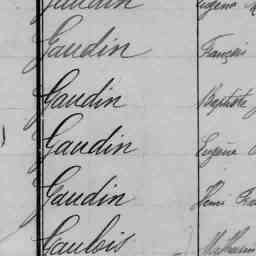 Gaudin Eugène
Gaudin François
Gaudin Baptiste
Gaudin Eugène
Gaudin Henri
Gaulois